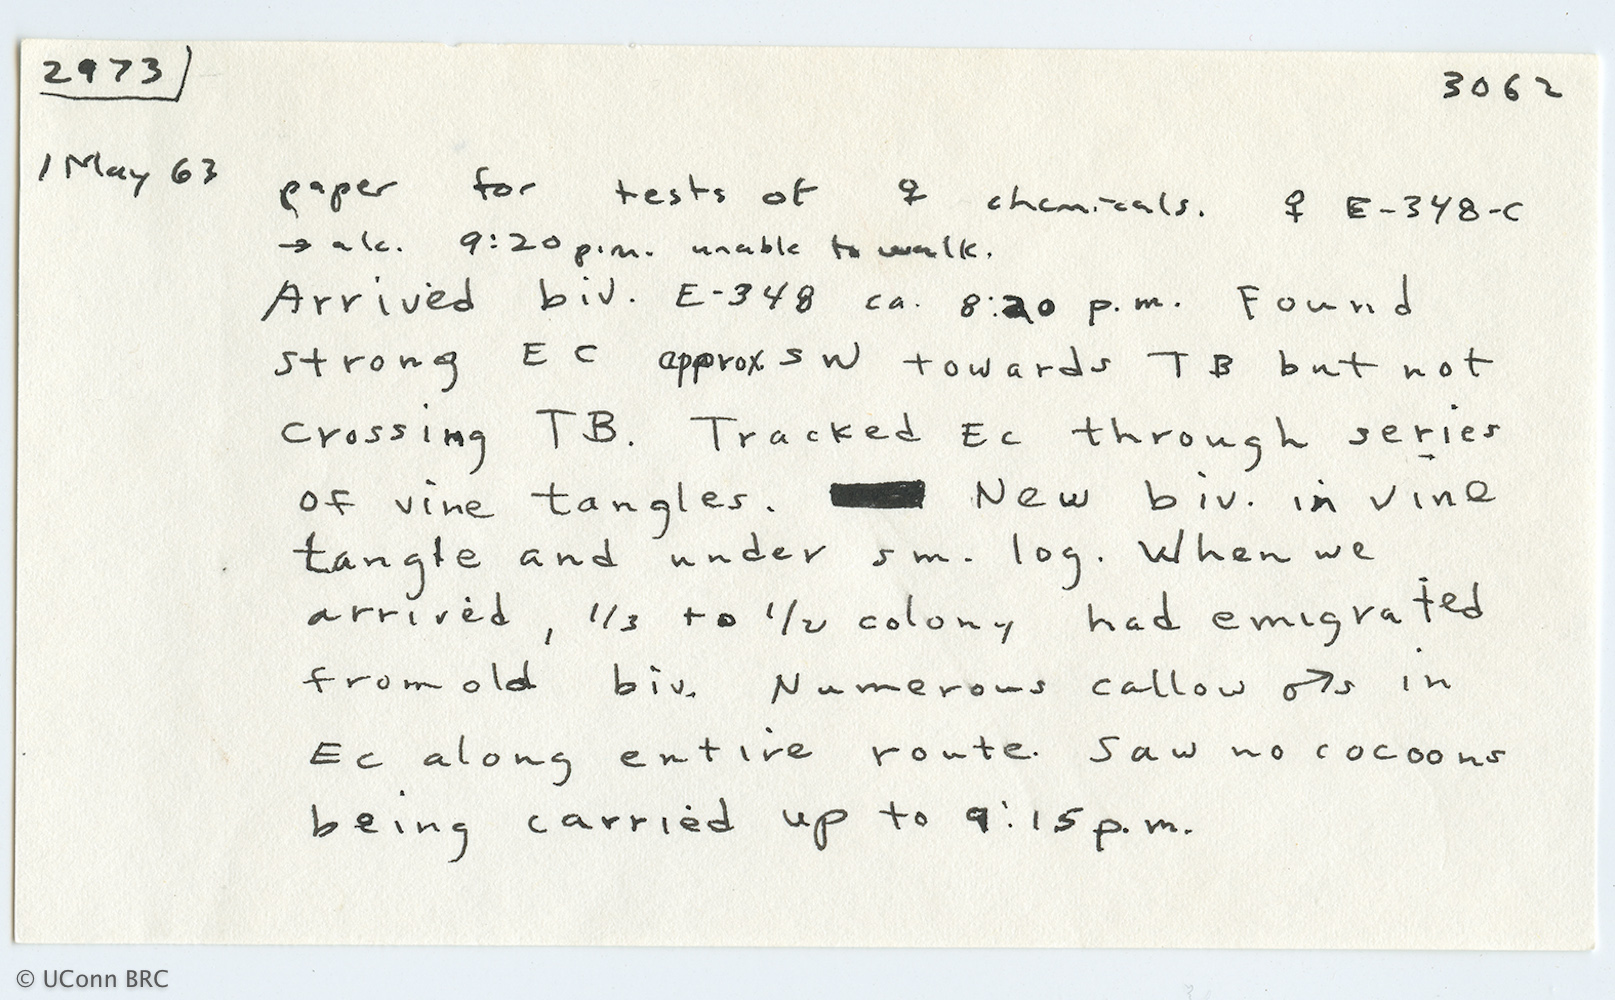 2973
3062
1 May 63
paper for tests of ♀ chemicals. ♀ E-348-C
→ alc. 9:20 p.m. unable to walk.
Arrived biv. E-348 ca. 8:20 p.m. Found
strong EC approx SW towards TB but not
crossing TB. Tracked Ec through series
of vine tangles. New biv. in vine
tangle and under sm. log. When we
arrived, 1/3 to 1/2 colony had emigrated
from old biv. Numerous callow ♂s in
Ec along entire route. Saw no cocoons
being carried up to 9:15 p.m.
© UConn BRC